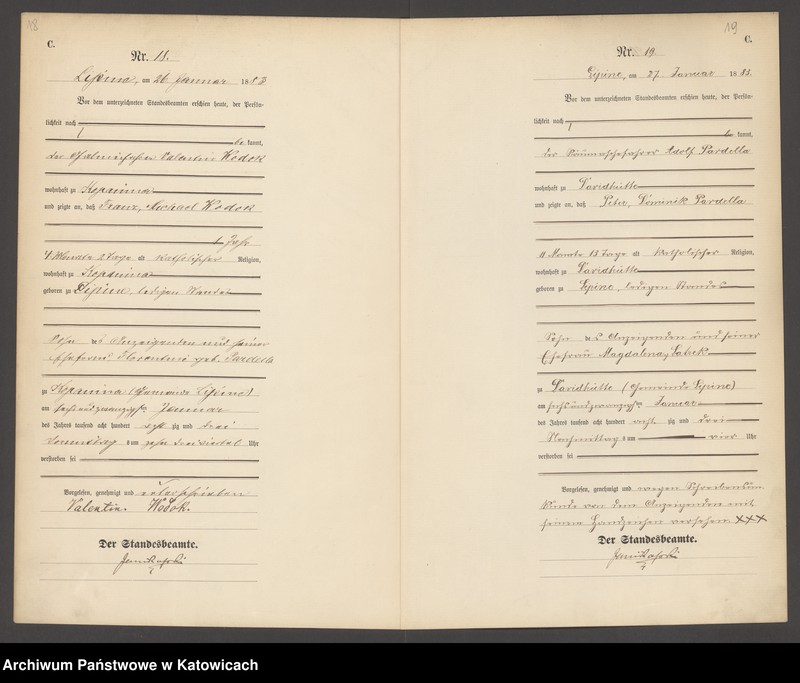 18
C.
Nr. 18.
Lipine, am 26 Januar 1883
Vor dem unterzeichneten Standesbeamten erschien heute, der Persön-
lichkeit nach
be kannt,
der Valentin Kodok
wohnhaft zu Kopanina
und zeigte an, daß Franz, Michael Kodok
1 Jahr
4 Monate 2 Tage alt katholischer Religion,
wohnhaft zu Kopanina
geboren zu Lipine, ledigen Standes
Sohn des Anzeigenden und seiner
Ehefrau Florentine geb. Pardella
zu Kopanina (Gemeinde Lipine)
am sechsundzwanzigsten Januar
des Jahres tausend acht hundert acht zig und drei
Vormittag s um zehn dreiviertel Uhr
verstorben sei
Vorgelesen, genehmigt und unterschrieben
Valentin. Kodok.
Der Standesbeamte.
19
C.
Nr. 19.
Lipine, am 27. Januar 1883.
Vor dem unterzeichneten Standesbeamten erschien heute, der Persön-
lichkeit nach
be kannt,
der Adolf Pardella
wohnhaft zu Davidhütte
und zeigte an, daß Peter, Dominik Pardella
11 Monate 13 Tage alt katholischer Religion,
wohnhaft zu Davidhütte
geboren zu Lipine, ledigen Standes
Sohn des Anzeigenden und seiner
Ehefrau Magdalena
zu Davidhütte (Gemeinde Lipine)
am sechsundzwanzigsten Januar
des Jahres tausend acht hundert acht zig und drei
Nachmittag s um vier Uhr
verstorben sei
Vorgelesen, genehmigt und wegen Schreibensun-
kunde von dem Anzeigenden mit
seinem Handzeichen versehen XXX
Der Standesbeamte.
Archiwum Państwowe w Katowicach